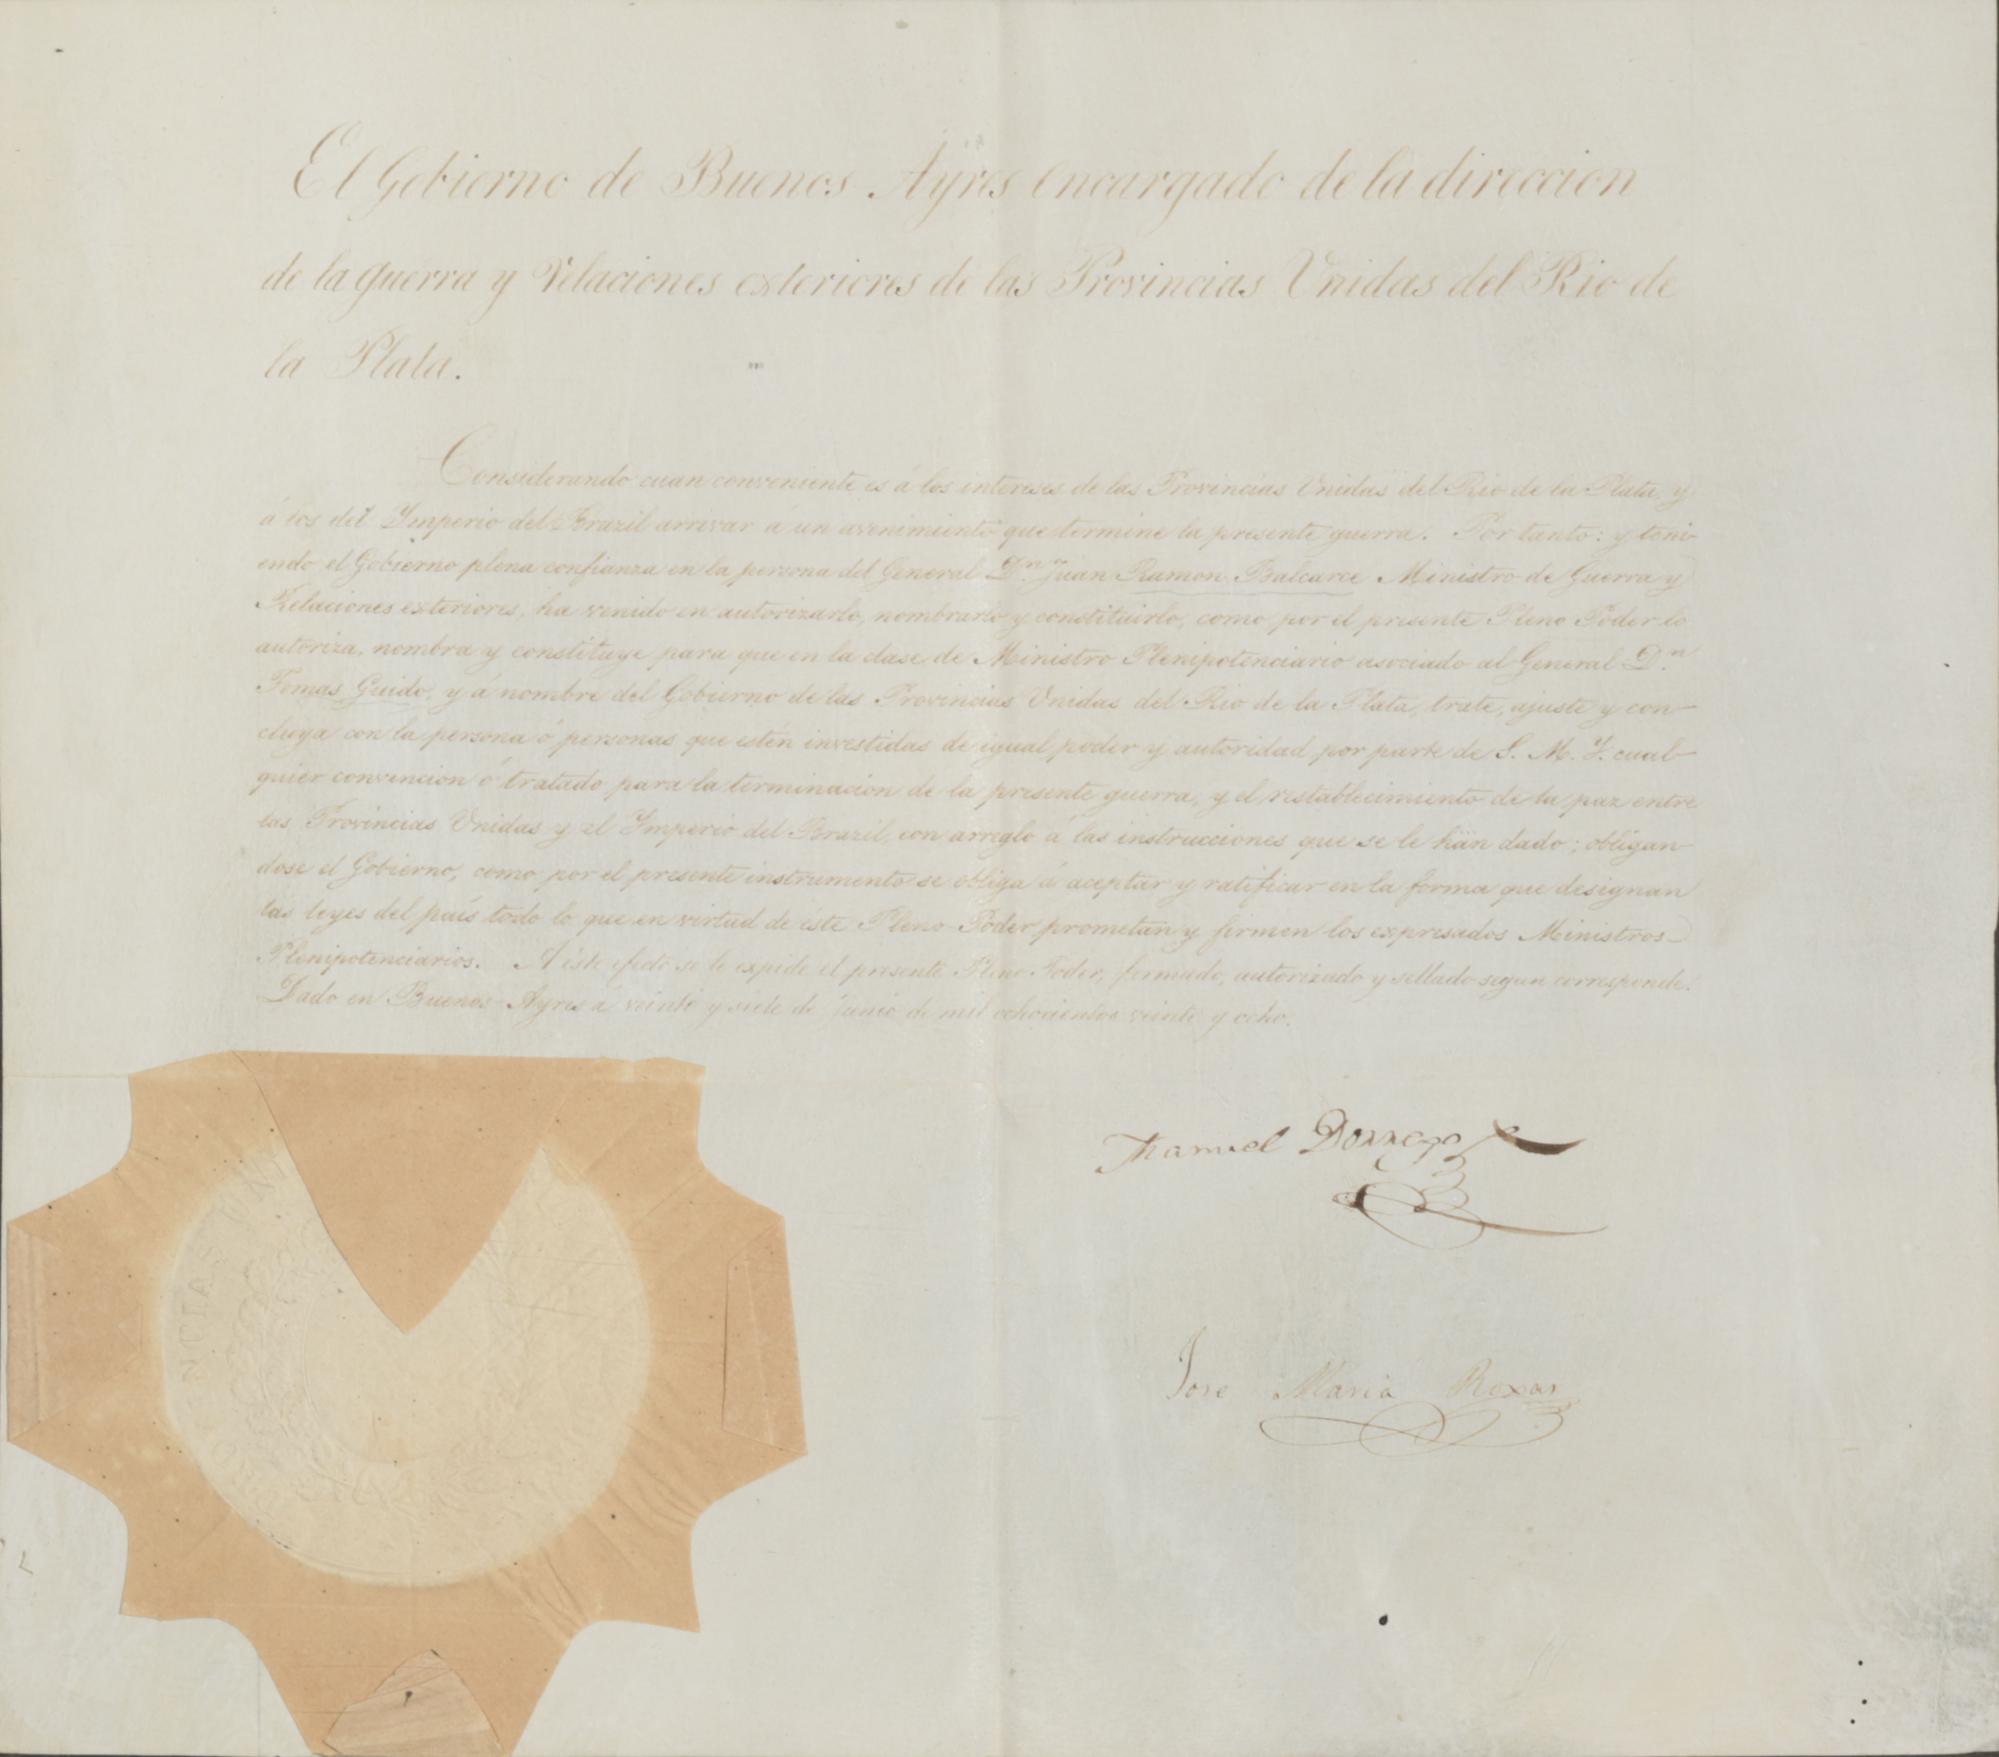 El Gobierno de Buenos Ayres encargado de la direccion
de la guerra y relaciones exteriores de las Provincias Unidas del Rio de
la Plata.
Considerando cuan conveniente es á los intereses de las Provincias Unidas del Rio de la Plata, y
á los del Ymperio del Brazil arrivar á un avenimiento que termine la presente guerra. Por tanto: y teni-
endo el Gobierno plena confianza en la persona del General Dn. Juan Ramon Balcarce Ministro de Guerra y
Relaciones exteriores, ha venido en autorizarlo, nombrarlo y constituirlo, como por el presente Pleno Poder lo
autoriza, nombra y constituye para que en la clase de Ministro Plenipotenciario asociado al General Dn.
Tomas Guido, y á nombre del Gobierno de las Provincias Unidas del Rio de la Plata, trate, ajuste y con-
cluya con la persona ó personas que estén investidas de igual poder y autoridad por parte de S. M. Y. cual-
quier convencion ó tratado para la terminacion de la presente guerra, y el restablecimiento de la paz entre
las Provincias Unidas y el Ymperio del Brazil, con arreglo á las instrucciones que se le han dado; obligan-
dose el Gobierno, como por el presente instrumento se obliga á aceptar y ratificar en la forma que designan
las leyes del país todo lo que en virtud de éste Pleno Poder prometan y firmen los expresados Ministros
Plenipotenciarios. A éste efecto se le expide el presente Pleno Poder, firmado, autorizado y sellado segun corresponde.
Dado en Buenos-Ayres á veinte y siete de Junio de mil ochocientos veinte y ocho.
Manuel Dorrego
Jose Maria Roxas
PROVINCIAS UN